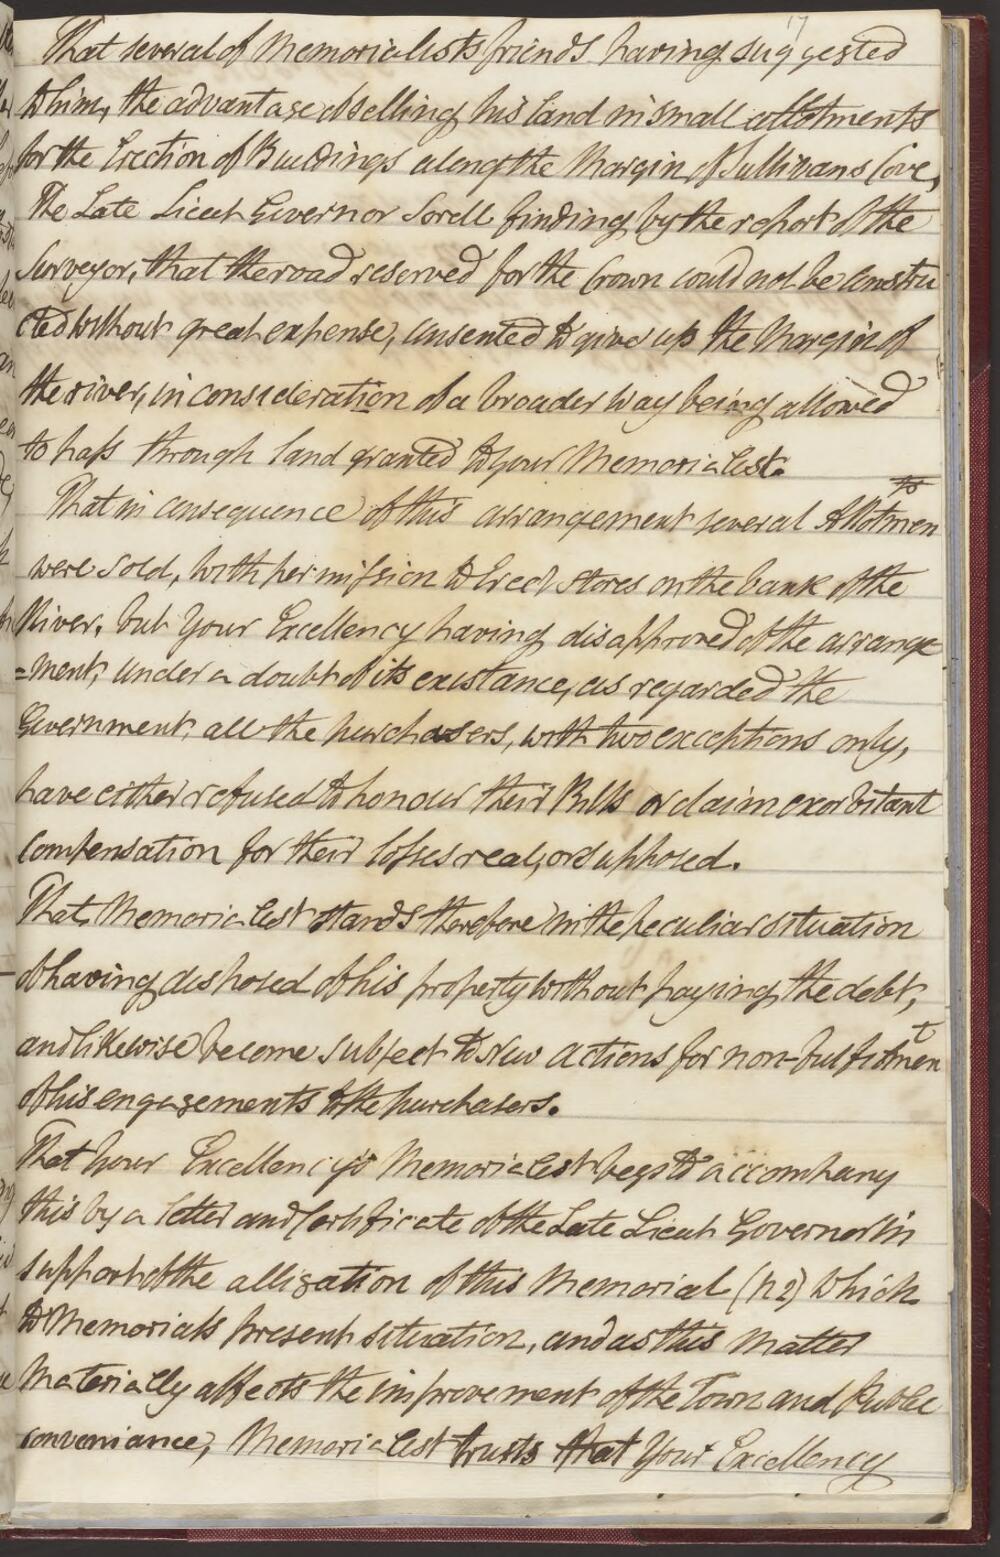 17
That several of Memorialists friends having suggested
to him, the advantage of selling his land in small allotments
for the Erection of Buildings along the Margin of Sullivans Cove,
The Late Lieut Governor Sorell finding by the report of the
Surveyor, that the road reserved for the Crown could not be constru
cted without great expense, consented to give up the Margin of
the river, in consideration of a broader way being allowed
to pass through land granted to your Memorialist.
That in consequence of this arrangement several Allotmen ts
were sold, with permission to Erect stores on the bank of the
River, but Your Excellency having disapproved of the arrange
=ment, under a doubt of its existance, as regarded the
Government, all the purchasers, with two exceptions only,
have either refused to honour their Bills or claim exorbitant
Compensation for their losses real, or supposed.
That Memorialist stands therefore in the peculiar situation
of having disposed of his property without paying the debt,
and likewise become subject to New actions for non-fulfilmen t
of his engagements to the purchasers.
That your Excellency's Memorialist begs to accompany
this by a letter and Certificate of the Late Lieut Governor in
support of the alligation of this Memorial (N 2) which
to Memorials present situation, and as this Matter
Materially affects the improvement of the Town and Public
conveniance, Memorialist trusts that Your Excellency